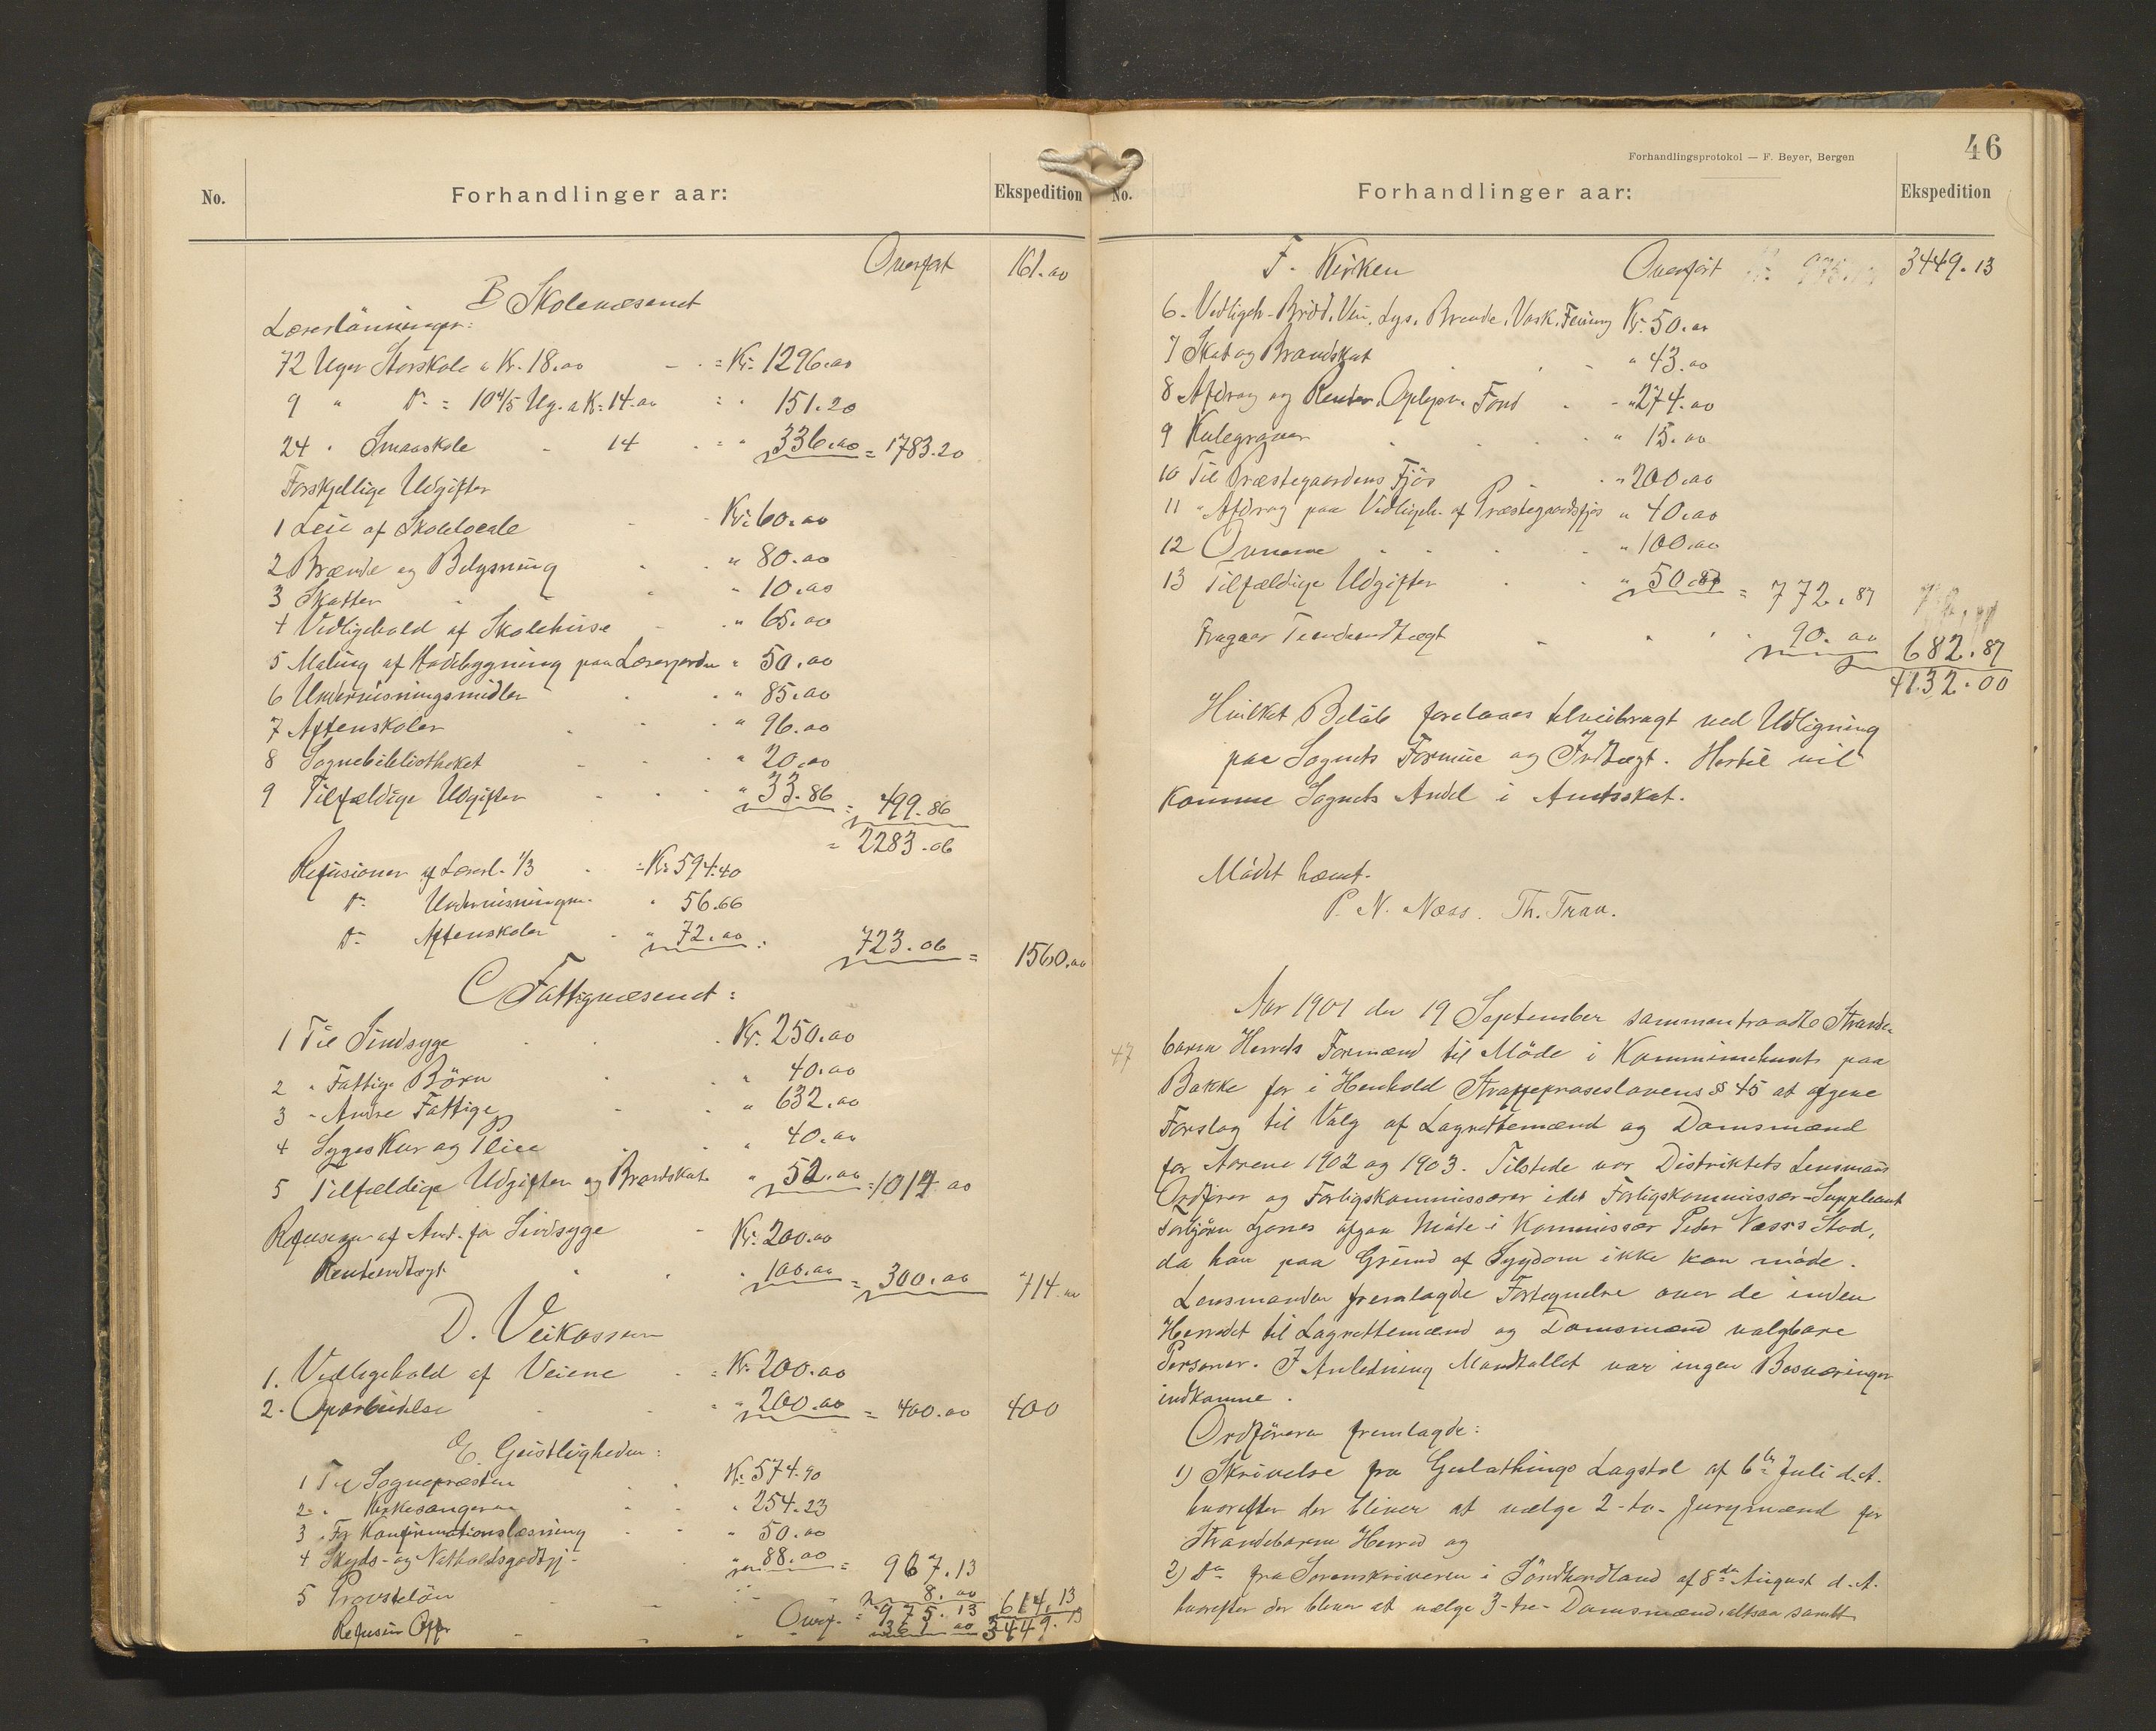 No.
Forhandlinger aar:
Ekspedition
Overført 161.00
B Skolevæsenet
Lærerlönninger:
72 Uger Storskole a Kr. 18.00 = Kr. 1296.00
9 " D- = 10 4/5 Ug. a Kr. 14.00 = " 151.20
24 " Smaaskole - 14 " 336.00 = 1783.20
Forskjellige Udgifter
1 Leie af Skolelocale Kr. 60.00
2 Brænde og Belysning " 80.00
3 Skatter " 10.00
4 Vedligehold af Skolehuse " 65.00
5 Maling af Hovedbygning paa Lærerjorden " 50.00
6 Undervisningsmidler " 85.00
7 Aftenskoler " 96.00
8 Sognebibliotheket " 20.00
9 Tilfældige Udgifter " 33.86 = 499.86
= 2283.06
Refusioner af Lærerl. 1/3 = Kr. 594.40
D- Undervisningsm. " 56.66
D- Aftenskoler " 72.00 = 723.06 = 1560.00
C Fattigvæsenet:
1 Til Sindsyge Kr. 250.00
2 " Fattige Börn " 40.00
3 " Andre Fattige " 632.00
4 Syges Kur og Pleie " 40.00
5 Tilfældige Udgifter og Brandskat " 52.00 = 1014 00
Refusion af Amt. for Sindsyge Kr. 200.00
Renteindtægt " 100.00 = 300.00 714.00
D. Veikassen
1. Vedligehold af Veiene = Kr. 200.00
2. Oparbeidelse " 200.00 = 400.00 400
E. Geistligheden:
1 Til Sognepræsten Kr. 574.90
2 " Kirkesangeren " 254.23
3 " For Konfirmationslæsning " 50.00
4 Skyds- og Natholdsgodtgj- " 88.00 = 967.13
5 Provstelön 8.00
Overf. = 975.13 614.13
Refusion Offer 361 00 3449.13
46
Forhandlingsprotokol — F. Beyer, Bergen
No.
Forhandlinger aar:
Ekspedition
F. Kirken Overført 3449.13
6. Vedligeh- Bröd, Vin, Lys, Brænde, Vask, Feining Kr. 50.00
7 Skat og Brandskat " 43.00
8 Afdrag og Renter, Oplysn. Fond " 274.00
9 Kulegraver " 15.00
10 Til Præstegaardens Fjös " 200.00
11 " Afdrag paa Vedligeh. af Præstegaardsfjøs " 40.00
12 Ovnene " 100.00
13 Tilfældige Udgifter " 50.87 = 772.87
Fragaar Tiendeindtægt 90.00 682.87
4132.00
Hvilket Belöb forelaaes tilveiebragt ved Udligning
paa Sognets Formue og Indtægt. Hertil vil
komme Sognets Andel i Amtsskat.
Mödet hævet.
P. N. Næss. Th. Traa.
Aar 1901 den 19 September sammentraadte Strande-
47 barm Herreds Formænd til Möde i Kommunehuset paa
Bakke for i Henhold Straffeproseslovens § 45 at afgive
Forslag til Valg af Lagrettemænd og Domsmænd
for Aarene 1902 og 1903. Tilstede var Distriktets Lensmand
Ordförer og Forligskommissærer idet Forligskommissær-Suppleant
Torbjörn Gjones afgav Möde i Kommissær Peder Næss's Sted,
da han paa Grund af Sygdom ikke kan möde.
Lensmanden fremlagde Fortegnelse over de inden
Herredet til Lagrettemænd og Domsmænd valgbare
Personer. I Anledning Mandtallet var ingen Besværinger
indkomne.
Ordföreren fremlagde:
1) Skrivelse fra Gulathings Lagstol af 6te Juli d.A.
hvorefter der bliver at vælge 2 - to - Jurymænd for
Strandebarm Herred og
2) Do fra Sorenskriveren i Söndhordland af 8de August d.A.
hvorefter der bliver at vælge 3 - tre - Domsmænd, altsaa samlet